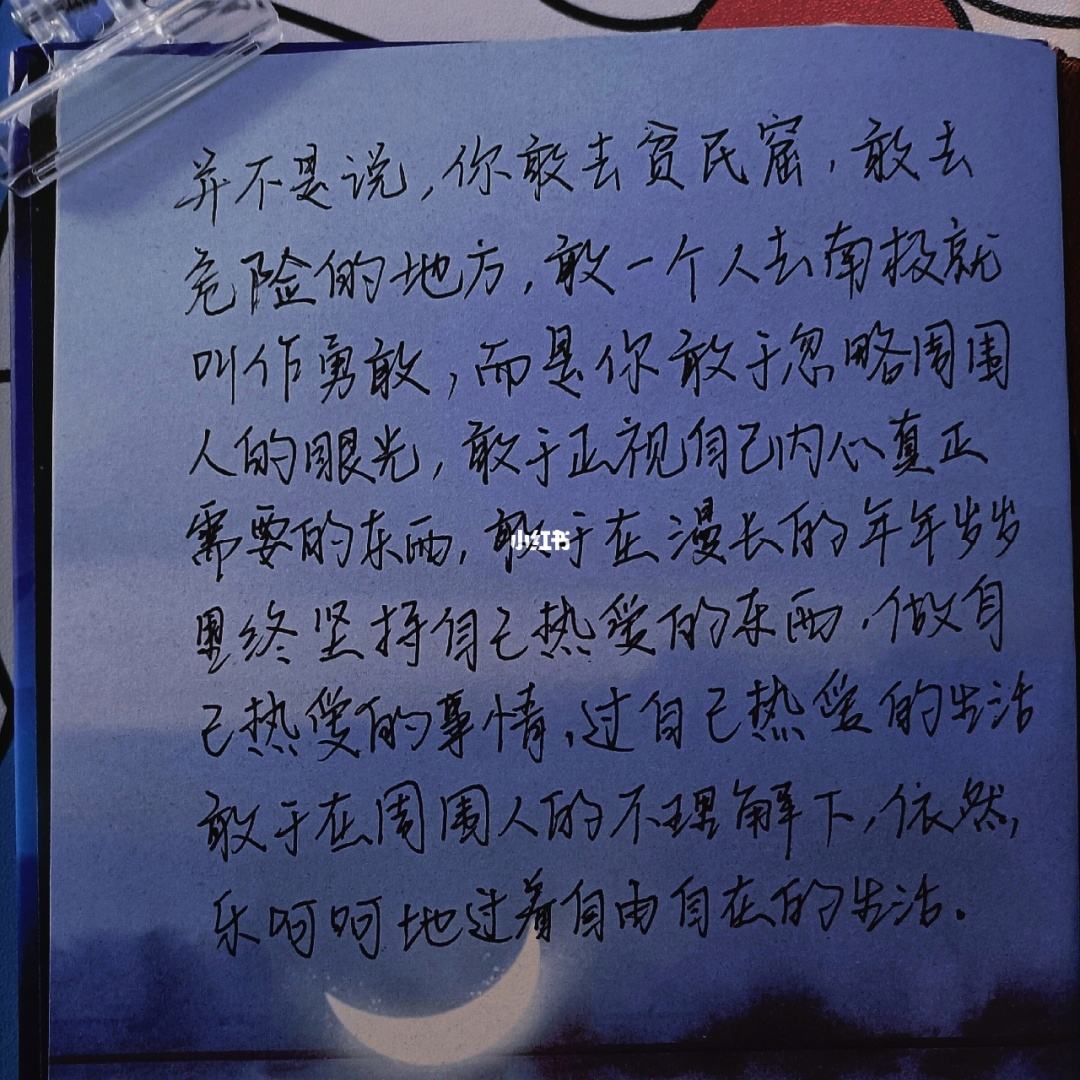 并不是说，你敢去贫民窟，敢去
危险的地方，敢一个人去南极就
叫作勇敢，而是你敢于忽略周围
人的眼光，敢于正视自己内心真正
需要的东西，敢于在漫长的年年岁岁
里终坚持自己热爱的东西，做自
己热爱的事情，过自己热爱的生活
敢于在周围人的不理解下，依然，
乐呵呵地过着自由自在的生活。
小红书